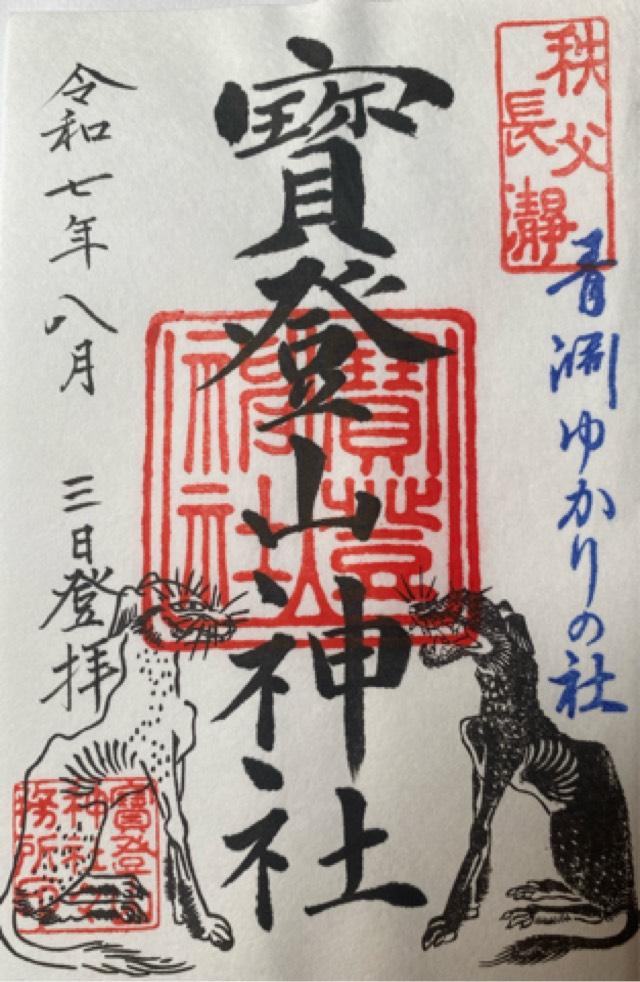 秩父
長瀞
青淵ゆかりの社
寶登山神社
寶登
神社
令和七年八月 三日登拝
寶登
神社
務所